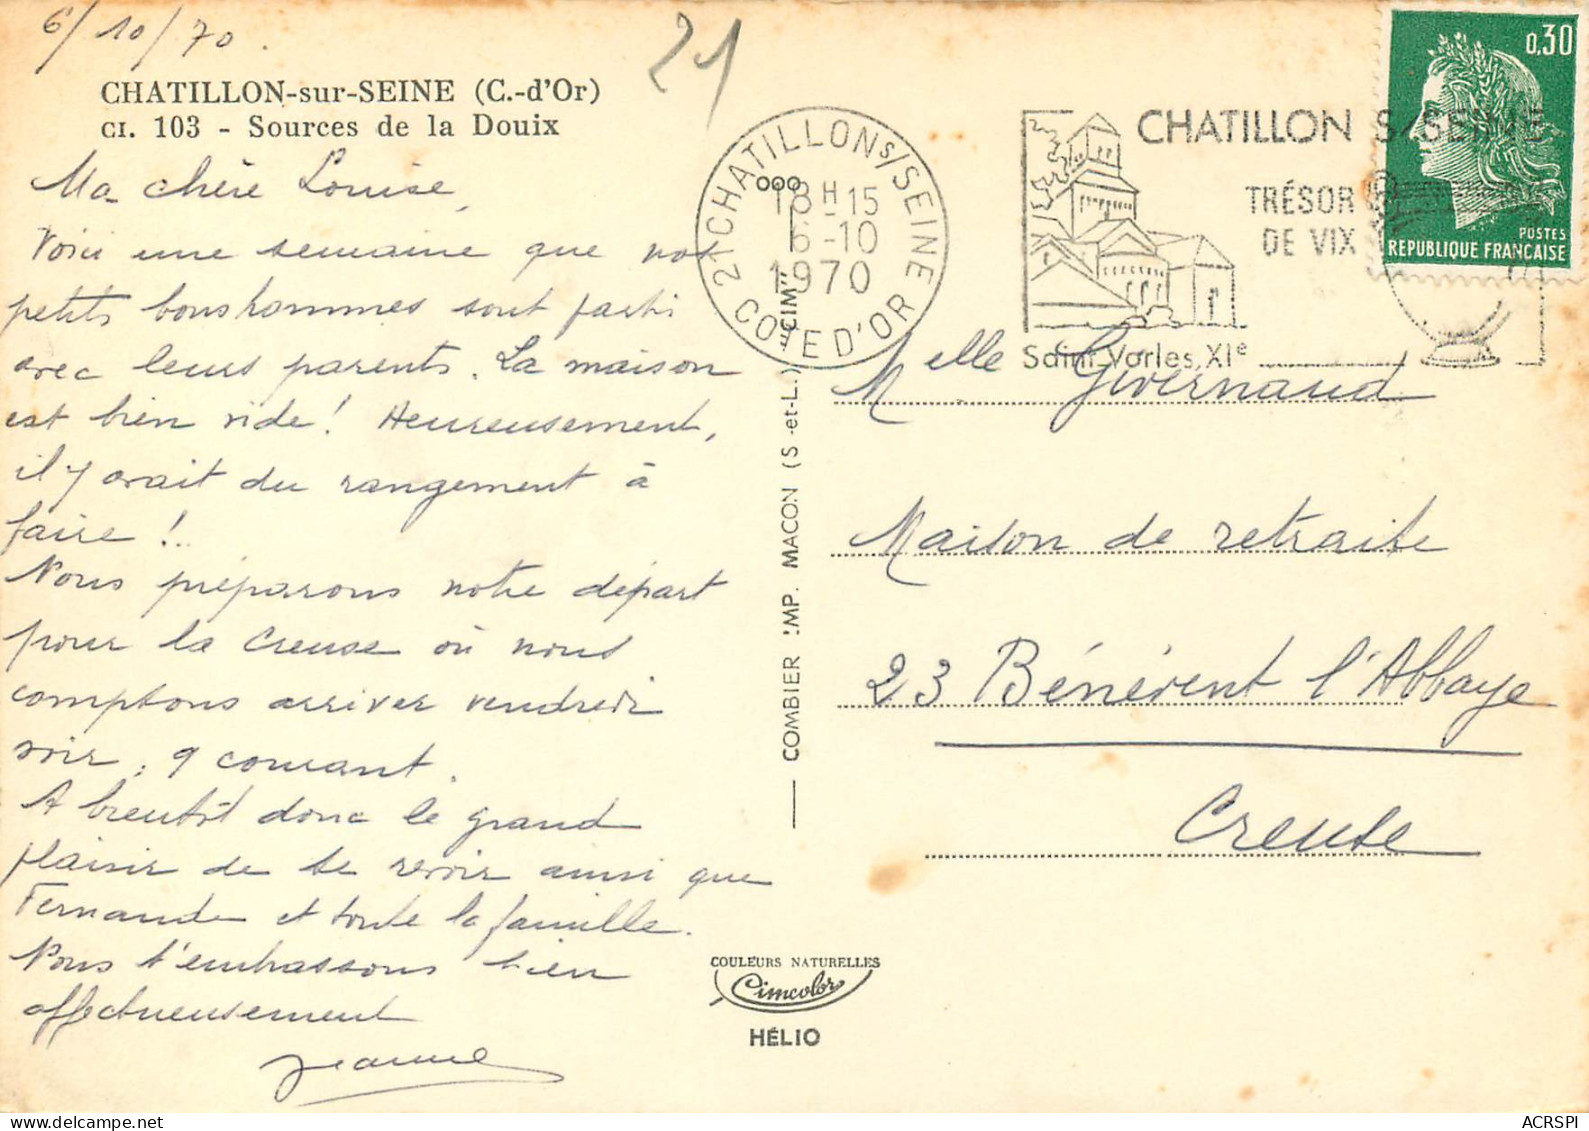 6/10/70.
21
CHATILLON-sur-SEINE (C.-d'Or)
CI. 103 - Sources de la Douix
Ma chère Louise,
Voici une semaine que nos
petits bonshommes sont partis
avec leurs parents. La maison
est bien vide! Heureusement,
il y avait du rangement à
faire!..
Nous préparons notre départ
pour la Creuse où nous
comptons arriver vendredi
soir, 9 courant.
A bientôt donc le grand
plaisir de te revoir ainsi que
Fernande et toute la famille.
Nous t'embrassons bien
affectueusement
Jeanne
COMBIER IMP. MACON (S.-et-L.) "CIM"
COULEURS NATURELLES
Cimcolor
HÉLIO
21 CHATILLON S/SEINE
18H15
6-10
1970
COTE D'OR
CHATILLON S/SEINE
TRÉSOR
DE VIX
Saint-Vorles, XIe
0,30
POSTES
REPUBLIQUE FRANCAISE
Melle Givernaud
Maison de retraite
23 Bénévent l'Abbaye
Creuse
ACRSPI